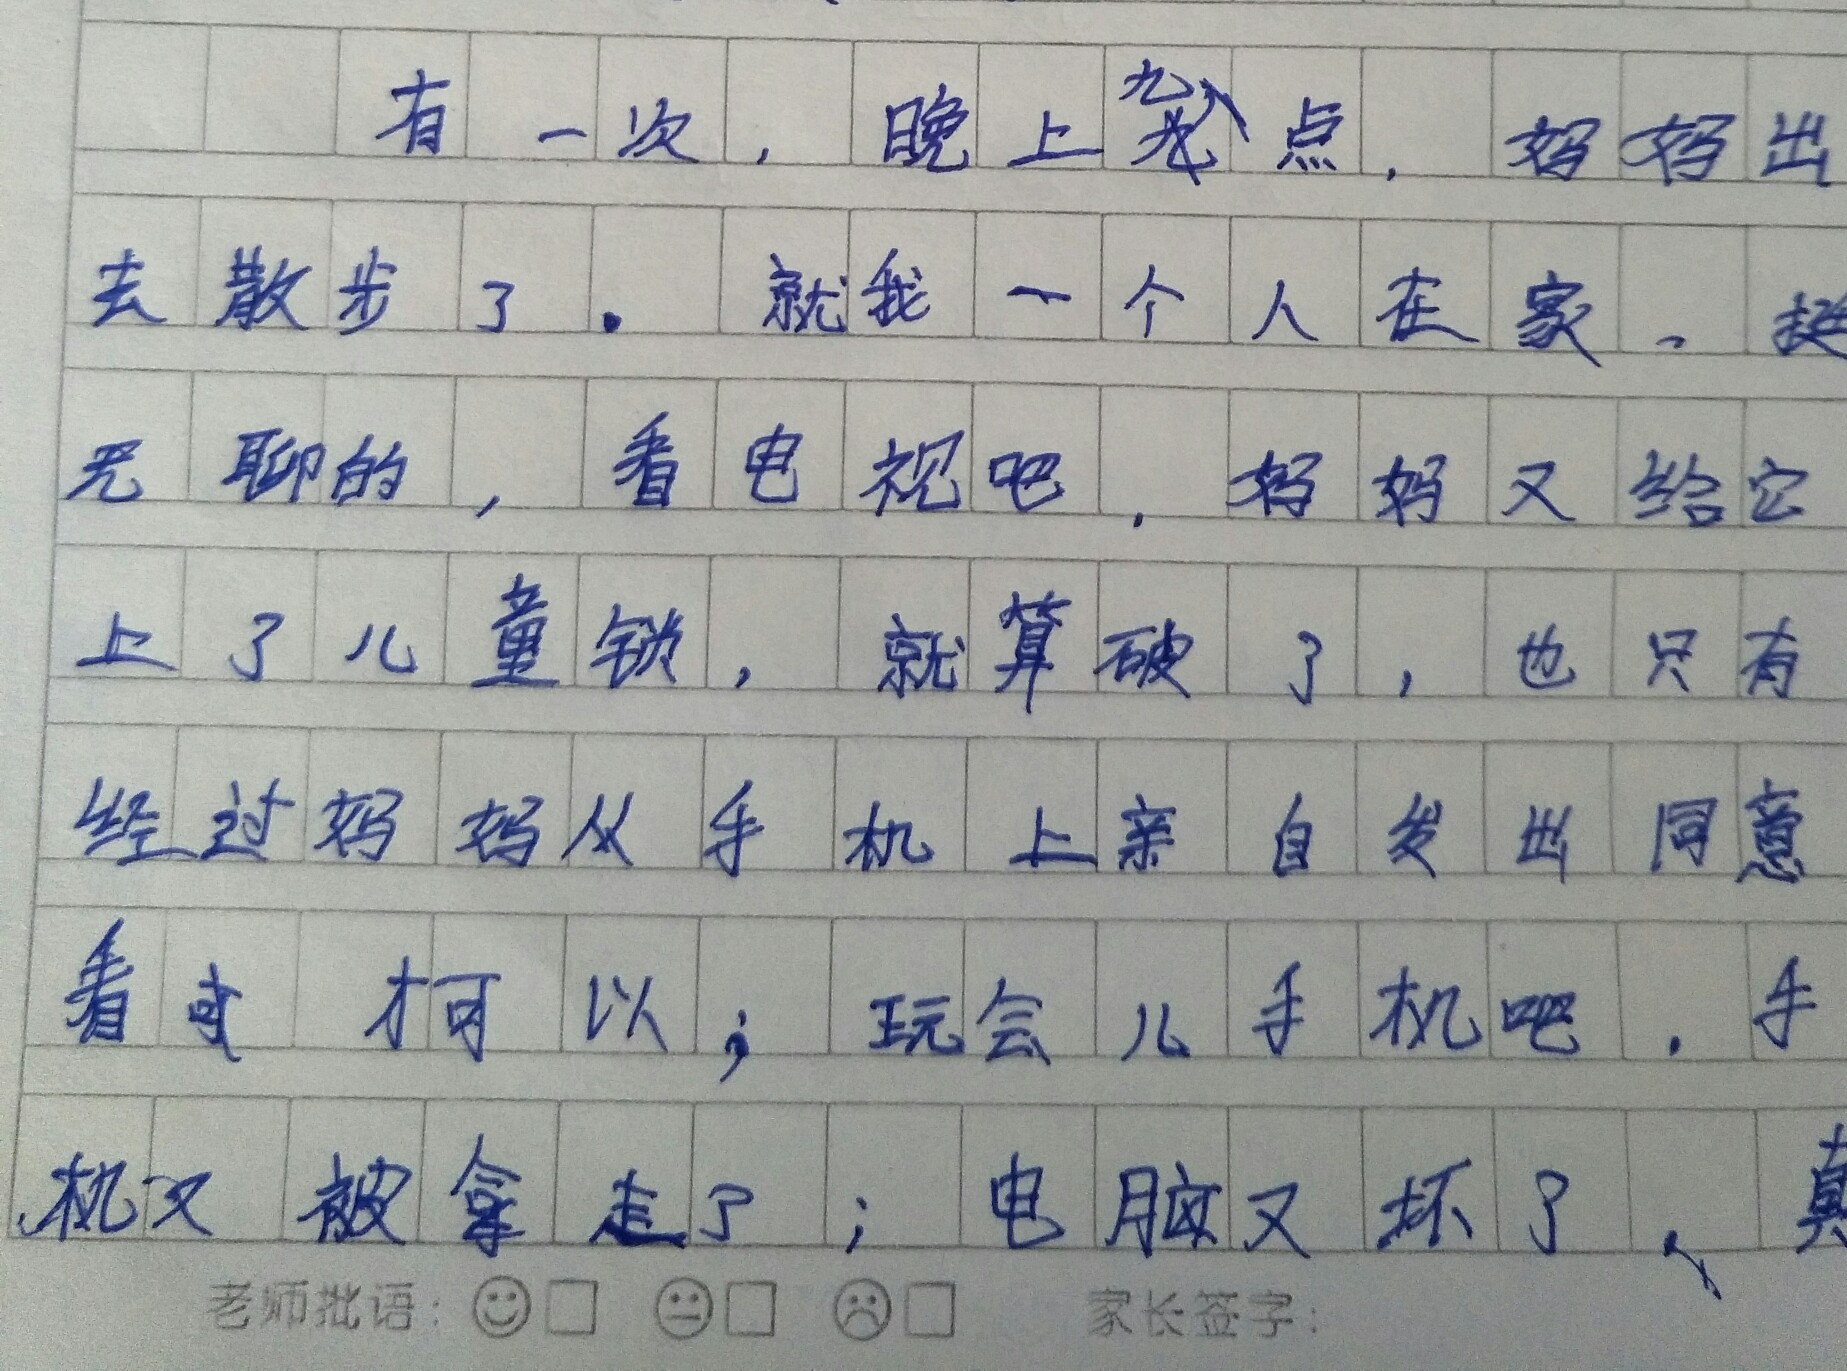 有一次，晚上九点，妈妈出
去散步了。就我一个人在家，挺
无聊的，看电视吧，妈妈又给它
上了儿童锁，就算破了，也只有
经过妈妈从手机上亲自发出同意
看 才可以；玩会儿手机吧，手
机又被拿走了；电脑又坏了，真
老师批语： 家长签字：